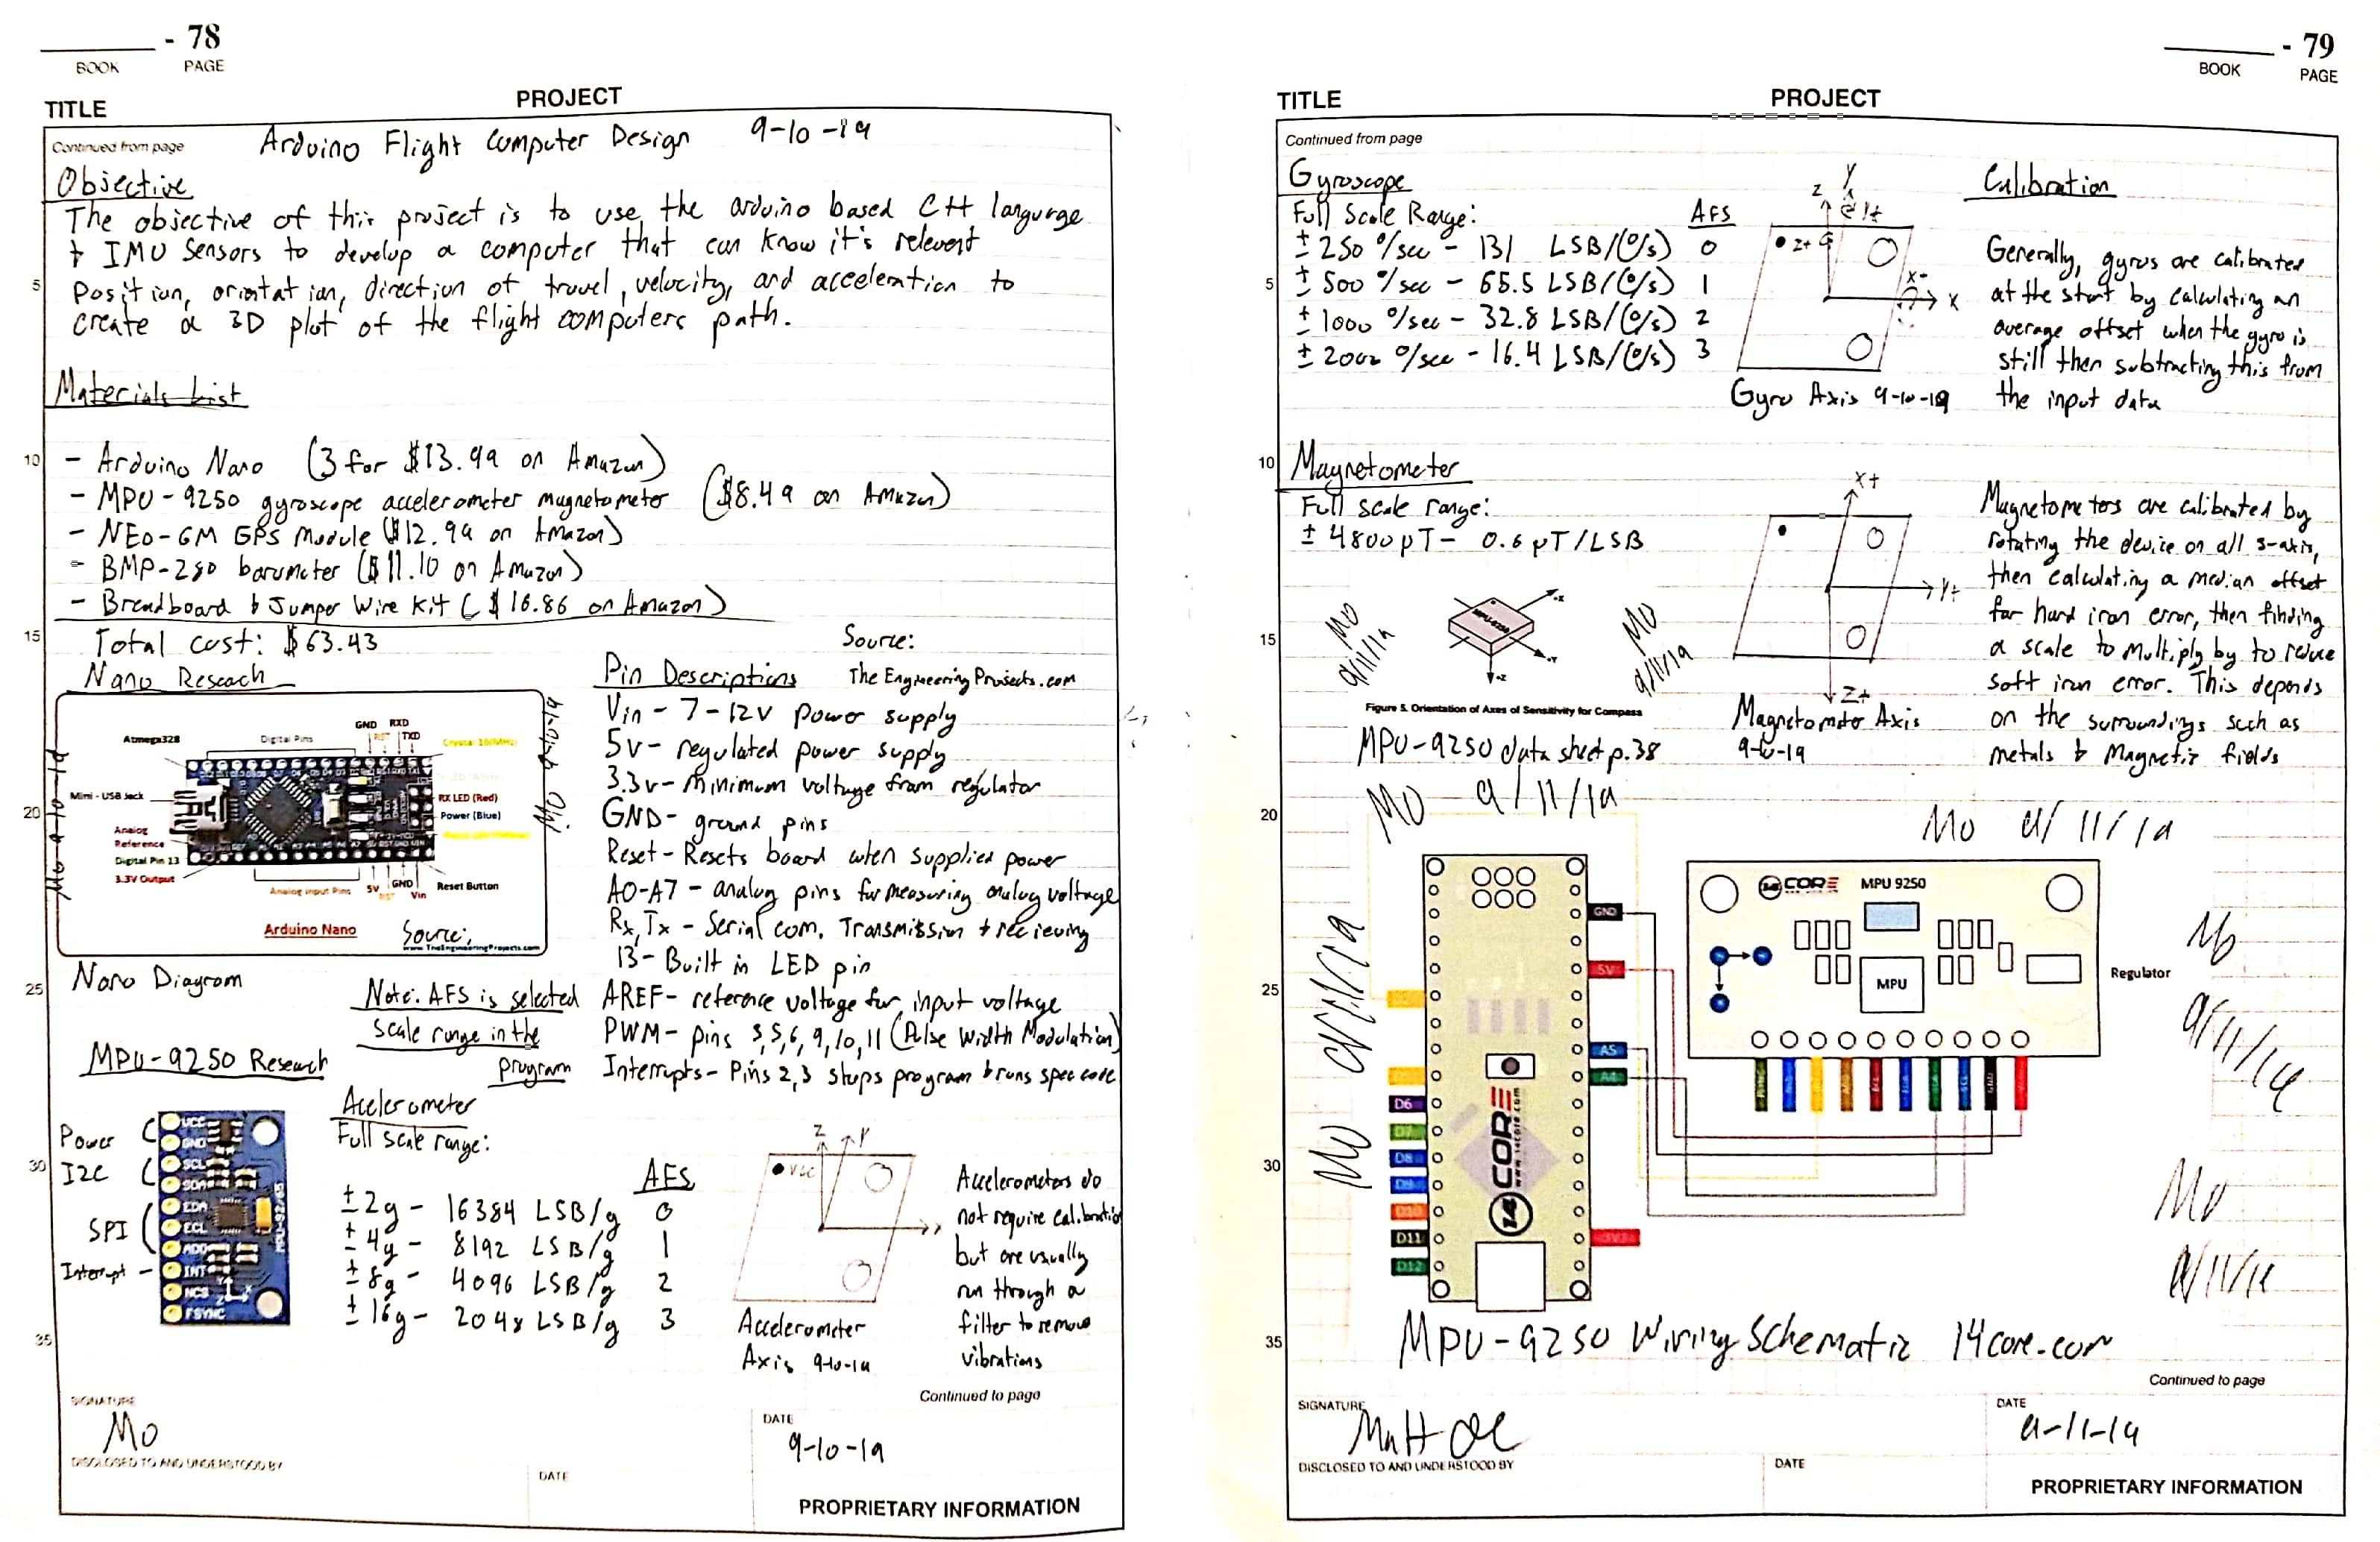 - 78
BOOK PAGE
TITLE PROJECT
Continued from page
Arduino Flight Computer Design 9-10-19
Objective
The objective of this project is to use the arduino based C++ langurge
+ IMU sensors to develop a computer that can know it's relevent
position, orientation, direction of travel, velocity, and acceleration to
create a 3D plot of the flight computers path.
Materials List
- Arduino Nano (3 for $13.99 on Amazon)
- MPU-9250 gyroscope accelerometer magnetometer ($8.49 on Amazon)
- NEO-6M GPS Module ($12.99 on Amazon)
- BMP-280 barometer ($11.10 on Amazon)
- Breadboard & Jumper Wire Kit ($16.86 on Amazon)
Total cost: $63.43
Nano Reseach
GND RXD
RST TXD
Atmega328
Digital Pins
Crystal 16(MHz)
Mini - USB Jack
RX LED (Red)
Power (Blue)
Analog
Reference
Digital Pin 13
3.3V Output
Analog Input Pins
5V GND
RST Vin
Reset Button
Arduino Nano
Source:
www.TheEngineeringProjects.com
MO 9-10-19
MO 9-10-19
Nano Diagram
Source:
The Engineering Projects.com
Pin Descriptions
Vin - 7-12V power supply
5v - regulated power supply
3.3v - minimum voltage from regulator
GND - ground pins
Reset - Resets board when supplied power
A0-A7 - analog pins for measuring analog voltage
Rx, Tx - Serial com. Transmission & recieving
13 - Built in LED pin
AREF - reference voltage for input voltage
PWM - pins 3,5,6,9,10,11 (Pulse Width Modulation)
Interrupts - Pins 2,3 stops program & runs spec code
Note: AFS is selected
scale range in the
program
MPU-9250 Research
Power
I2C
SPI
Interrupt
VCC
GND
SCL
SDA
EDA
ECL
ADO
INT
NCS
FSYNC
MPU-9250
Accelerometer
Full scale range:
AFS
±2g - 16384 LSB/g 0
±4g - 8192 LSB/g 1
±8g - 4096 LSB/g 2
±16g - 2048 LSB/g 3
Z
Y
VCC
X
Accelerometer
Axis 9-10-19
Accelerometers do
not require calibration
but are usually
run through a
filter to remove
vibrations
Continued to page
SIGNATURE
MO
DATE
9-10-19
DISCLOSED TO AND UNDERSTOOD BY
DATE
PROPRIETARY INFORMATION
- 79
BOOK PAGE
TITLE PROJECT
Continued from page
Gyroscope
Full Scale Range: AFS
±250 °/sec - 131 LSB/(°/s) 0
±500 °/sec - 65.5 LSB/(°/s) 1
±1000 °/sec - 32.8 LSB/(°/s) 2
±2000 °/sec - 16.4 LSB/(°/s) 3
Y
Z
Y+
Z+
X+
X
Gyro Axis 9-10-19
Calibration
Generally, gyros are calibrated
at the start by calculating an
average offset when the gyro is
still then subtracting this from
the input data
Magnetometer
Full scale range:
±4800µT - 0.6 µT/LSB
MPU-9250
+X
+Y
+Z
MO
9/11/19
MO
9/11/19
Figure 5. Orientation of Axes of Sensitivity for Compass
MPU-9250 data sheet p.38
X+
Y+
Z+
Magnetometer Axis
9-10-19
Magnetometers are calibrated by
rotating the device on all 3-axis,
then calculating a median offset
for hard iron error, then finding
a scale to multiply by to reduce
soft iron error. This depends
on the surroundings such as
metals & Magnetic fields
MO 9/11/19
MO 9/11/19
MO 9/11/19
GND
5V
A5
A4
3V3
D6
D7
D8
D9
D10
D11
D12
14CORE
www.14core.com
14CORE MPU 9250
MPU
Regulator
MO
9/11/19
MO
9/11/19
MPU-9250 Wiring Schematic 14core.com
Continued to page
SIGNATURE
DATE
9-11-19
DISCLOSED TO AND UNDERSTOOD BY
DATE
PROPRIETARY INFORMATION